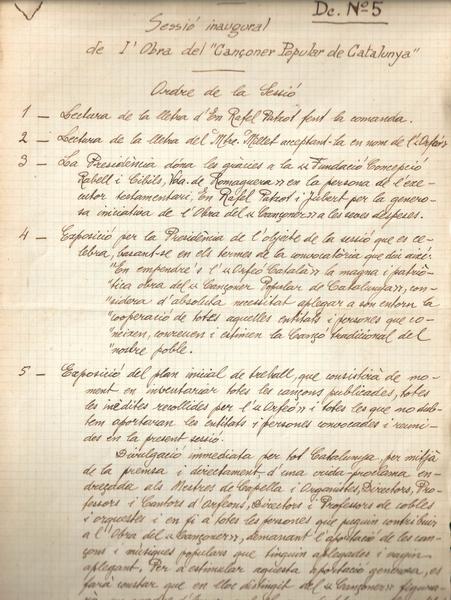 Dc. Nº 5
Sessió inaugural
de l'Obra del "Cançoner Popular de Catalunya"
Ordre de la Sessió
1 — Lectura de la lletra d'En Rafel Patxot fent la comanda.
2 — Lectura de la lletra del Mtre. Millet acceptant-la en nom de l'"Orfeó"
3 — La Presidència dóna les gràcies a la "Fundació Concepció
Rabell i Cibils, Vda. de Romaguera" en la persona de l'exe-
cutor testamentari, En Rafel Patxot i Jubert per la genero-
sa iniciativa de l'Obra del "Cançoner" a les seves despeses.
4 — Exposició per la Presidència de l'objecte de la sessió que es ce-
lebra, basant-se en els termes de la convocatòria que diu així:
"En empendre's l'"Orfeó Català" la magna i patriò-
"tica obra del "Cançoner Popular de Catalunya", con-
"sidera d'absoluta necessitat aplegar a son entorn la
"cooperació de totes aquelles entitats i persones que co-
"neixen, conreuen i estimen la Cançó tradicional del
"nostre poble.
5 — Exposició del plan inicial de treball, que consistirà de mo-
ment en inventariar totes les cançons publicades, totes
les inèdites recollides per l'"Orfeó" i totes les que no dub-
tem aportaran les entitats i persones convocades i reuni-
des en la present sessió.
Divulgació immediata per tot Catalunya, per mitjà
de la premsa i directament d'una crida-proclama en-
dreçada als Mestres de Capella i Organistes, Directors, Pro-
fessors i Cantors d'Orfeons, Directors i Professors de cobles
i orquestes i en fi a totes les persones que puguin contribuir
a l'Obra del "Cançoner", demanant l'aportació de les can-
çons i músiques populars que tinguin aplegades i vagin
aplegant. Per a estimular aquesta aportació generosa, es
farà constar que en lloc distingit del "Cançoner" figura-